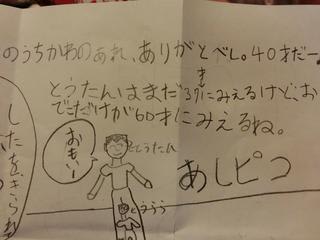 のうちかわのあれ、ありがとべし。40才だー。
とうたんはまだ3才にみえるけど、お
でこだけが60才にみえるね。
おもい
ととうたん
あしピコ
とううう
したをきられ